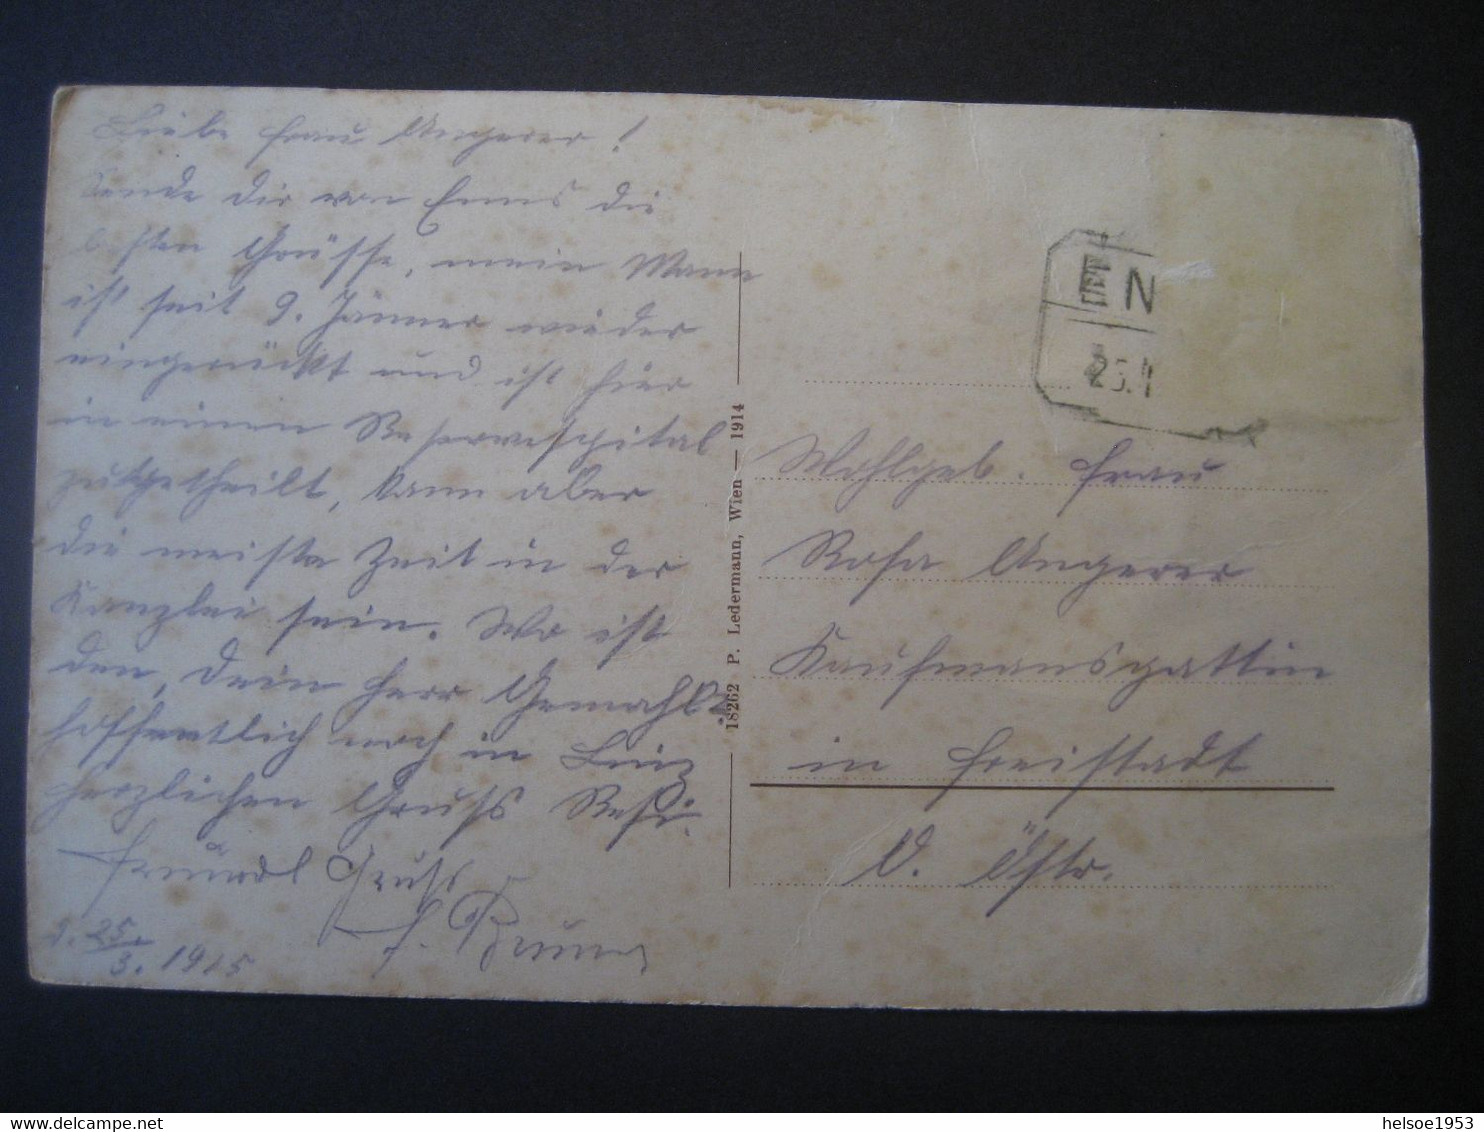 Liebe Frau Angerer!
Sende dir von Enns die
besten Grüsse, mein Mann
ist seit 9. Jänner wieder
eingerückt und ist hier
in einen Reservespital
zugetheilt, kann aber
die meiste Zeit in der
Kanzlei sein. Wo ist
den, Dein Herr Gemahl?
hoffentlich noch in Linz
herzlichen Gruss Resi.
Freundl Gruss
F.
d. 25/3. 1915
18262 P. Ledermann, Wien — 1914
EN
Wohlgeb. Frau
Rosa Angerer
Kaufmansgattin
in Freistadt
O. Östr.
helsoe1953